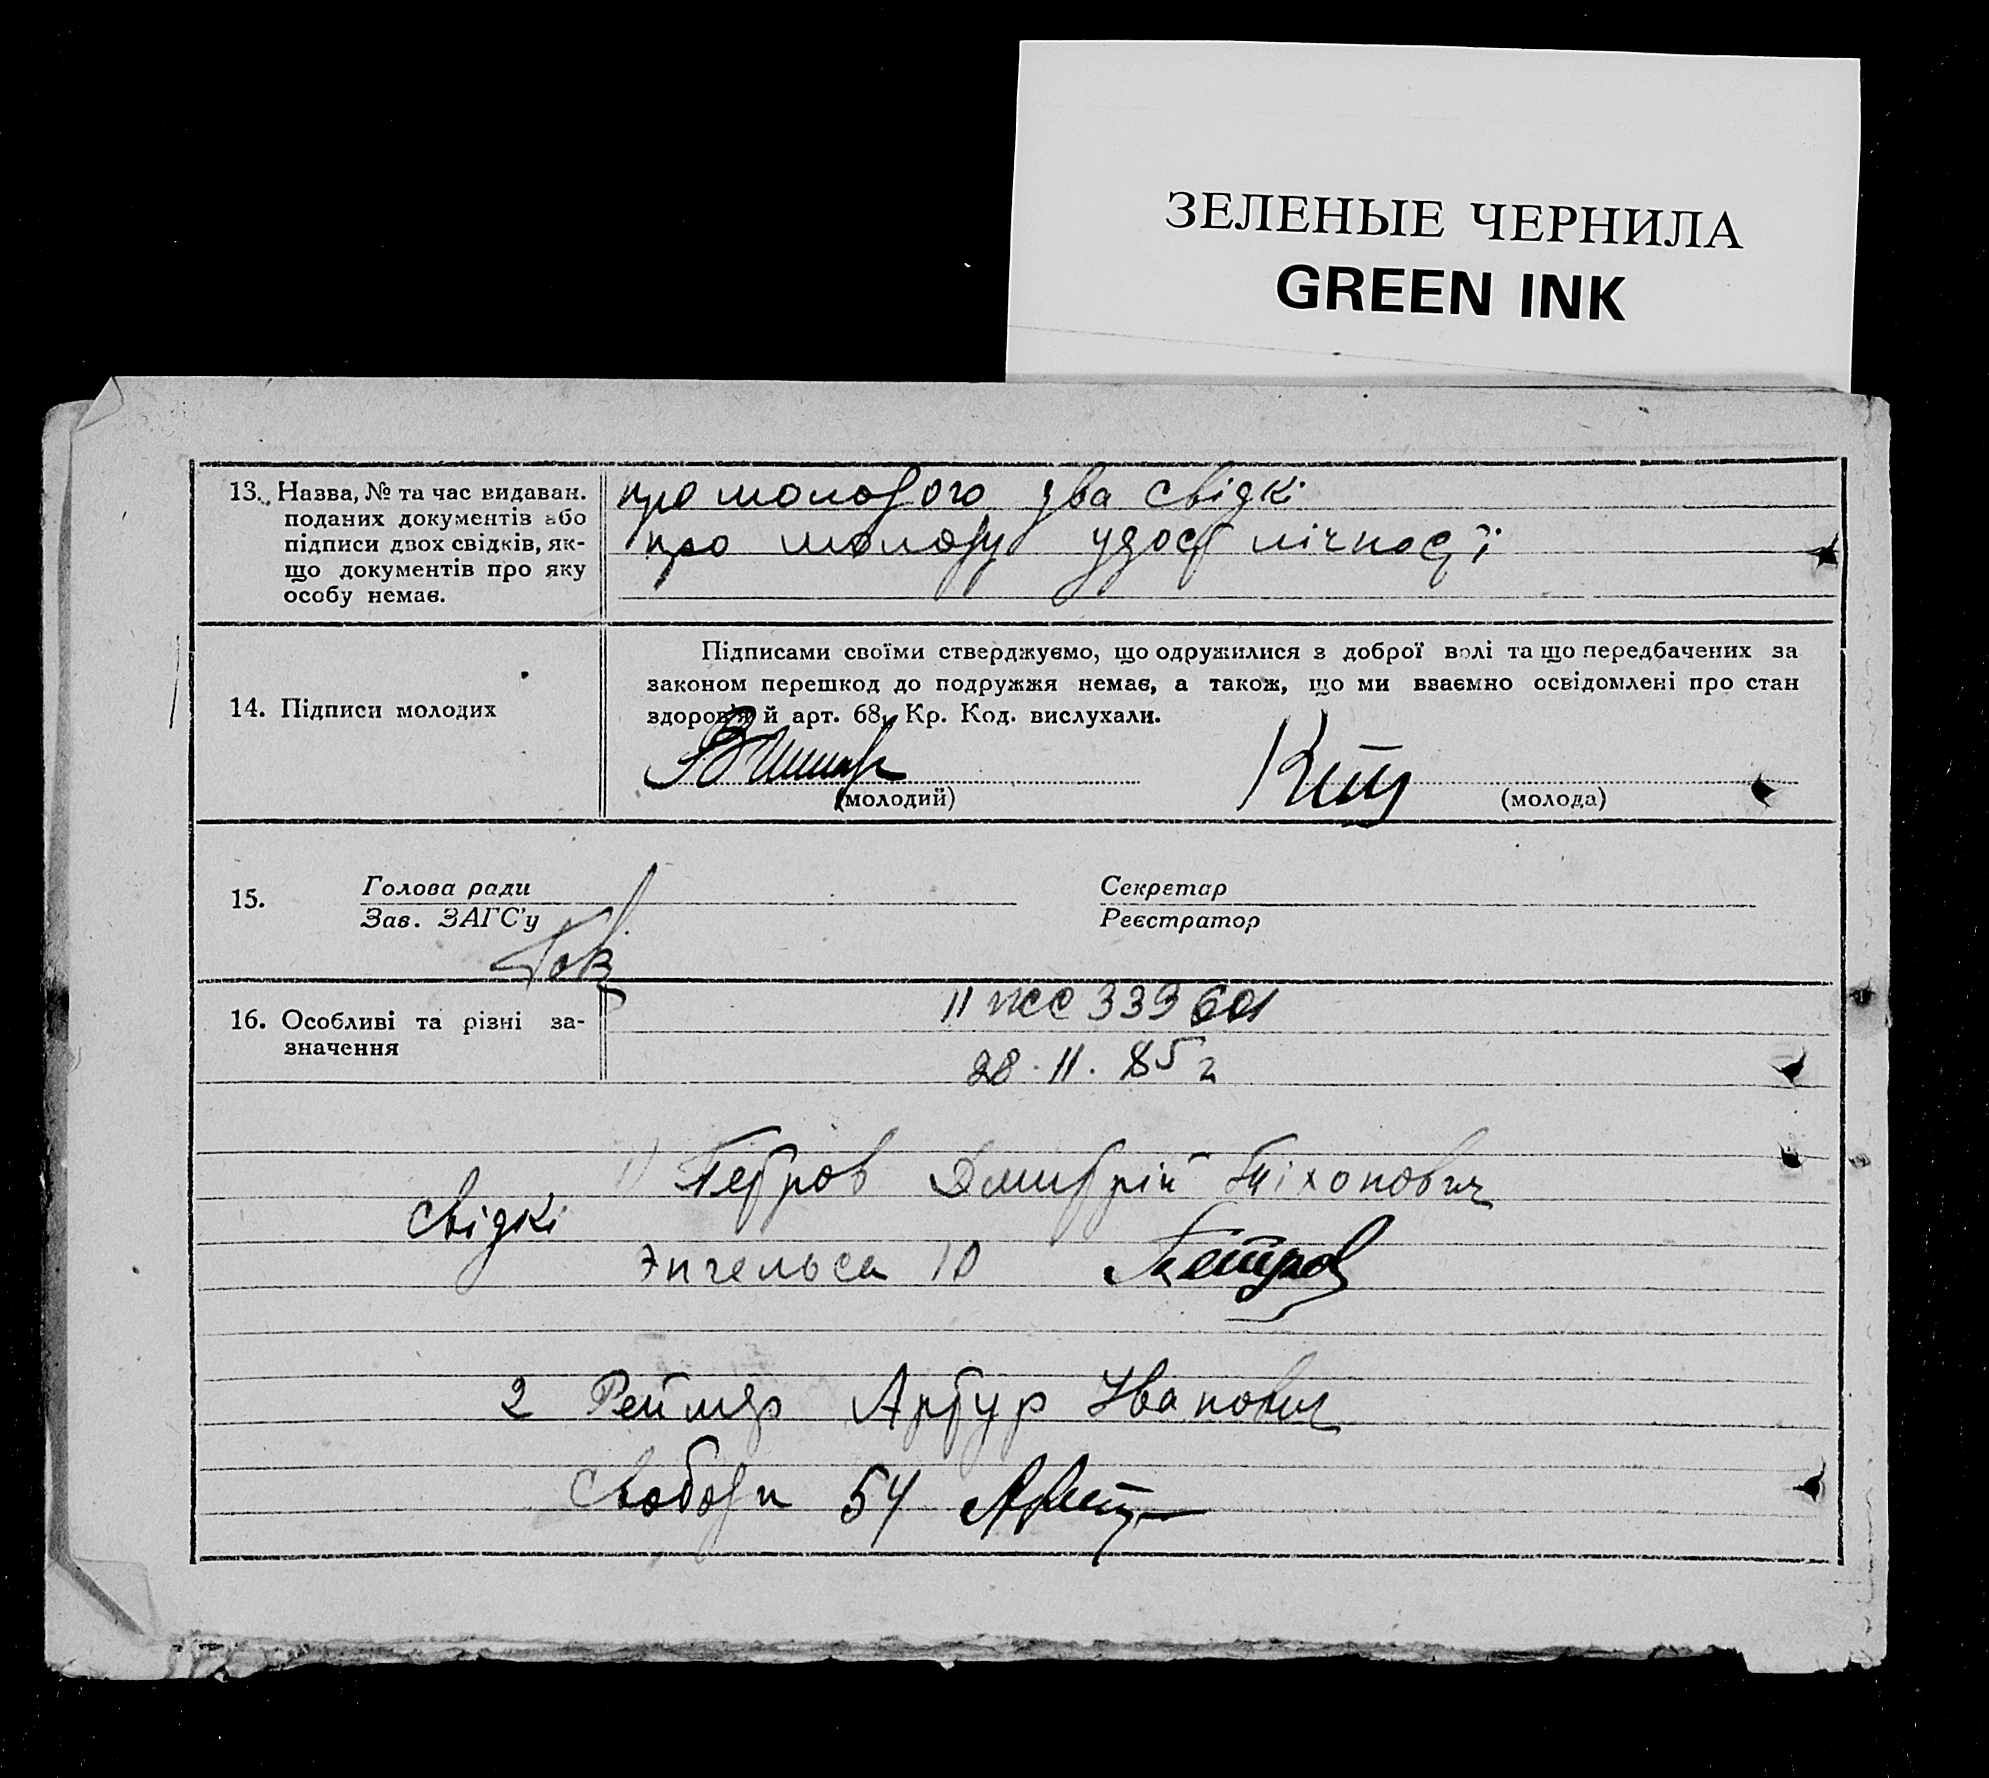 ЗЕЛЕНЫЕ ЧЕРНИЛА
GREEN INK
13. Назва, № та час видаван.
поданих документів або
підписи двох свідків, як-
що документів про яку
особу немає.
про молодого два свідкі
про молоду удост лічності
14. Підписи молодих
Підписами своїми стверджуємо, що одружилися з доброї волі та що передбачених за
законом перешкод до подружжя немає, а також, що ми взаємно освідомлені про стан
здоров'я й арт. 68, Кр. Код. вислухали.
(молодий)
(молода)
15.
Голова ради
Зав. ЗАГС'у
Секретар
Реєстратор
16. Особливі та різні за-
значення
II ЖС 339601
28.11.85 г
Свідкі
1) Петров Дмитрій Тіхонович
Энгельса 10 Петров
2 Реймер Артур Иванович
Свободи 54